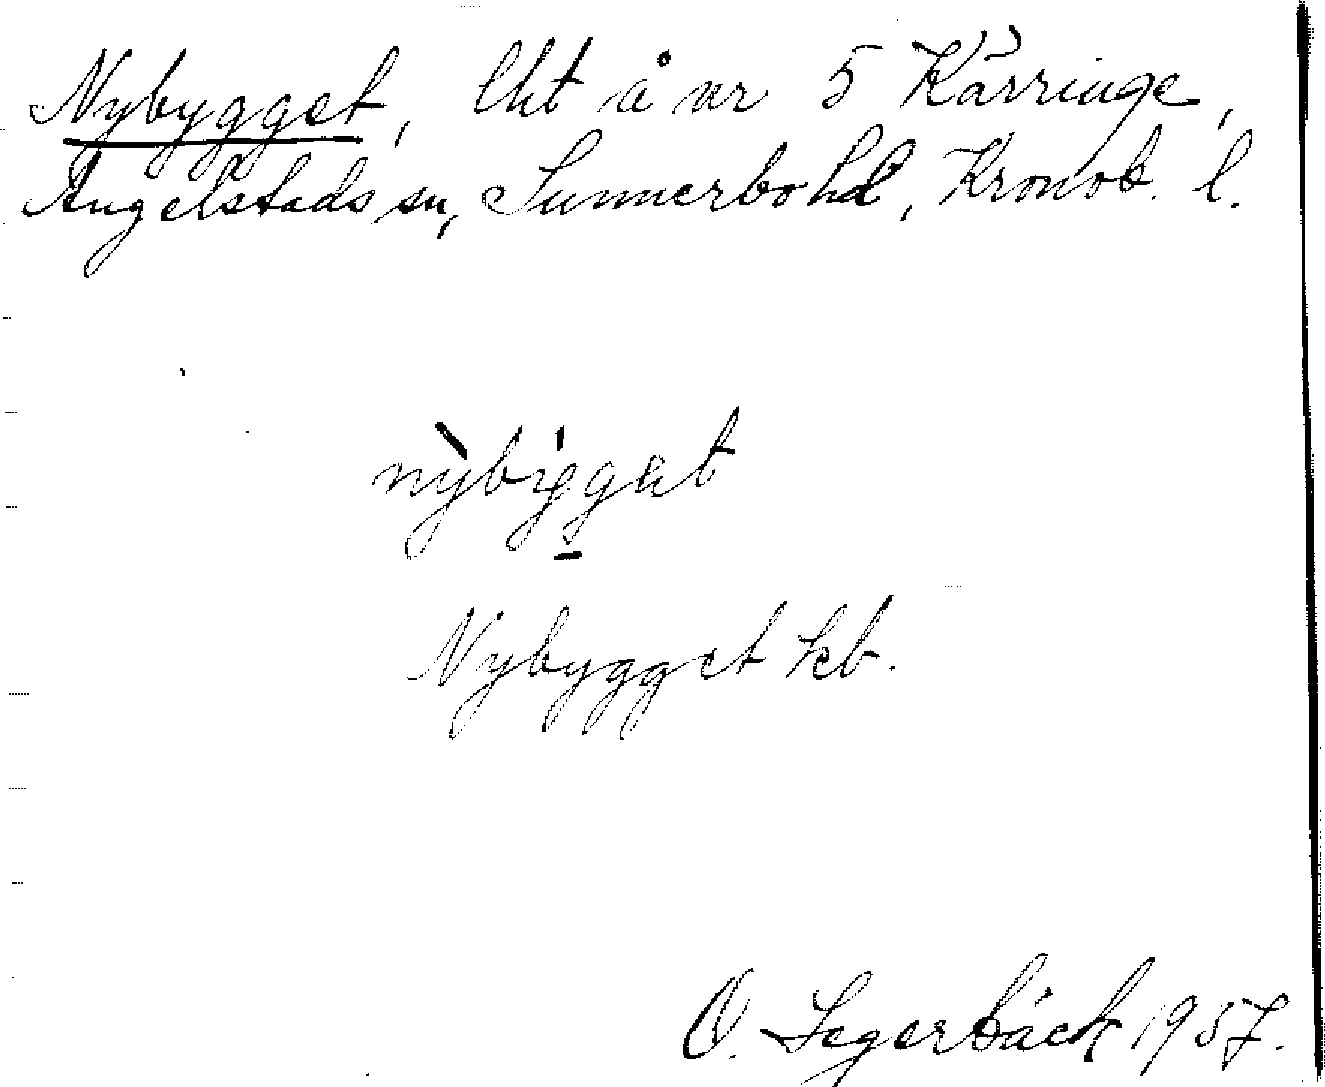 Nybygget, lht å nr 5 Kärringe,
Angelstads sn, Sunnerbo hd, Kronob. l.
nỳbýgget
Nybygget kb.
O. Segerbäck 1957.